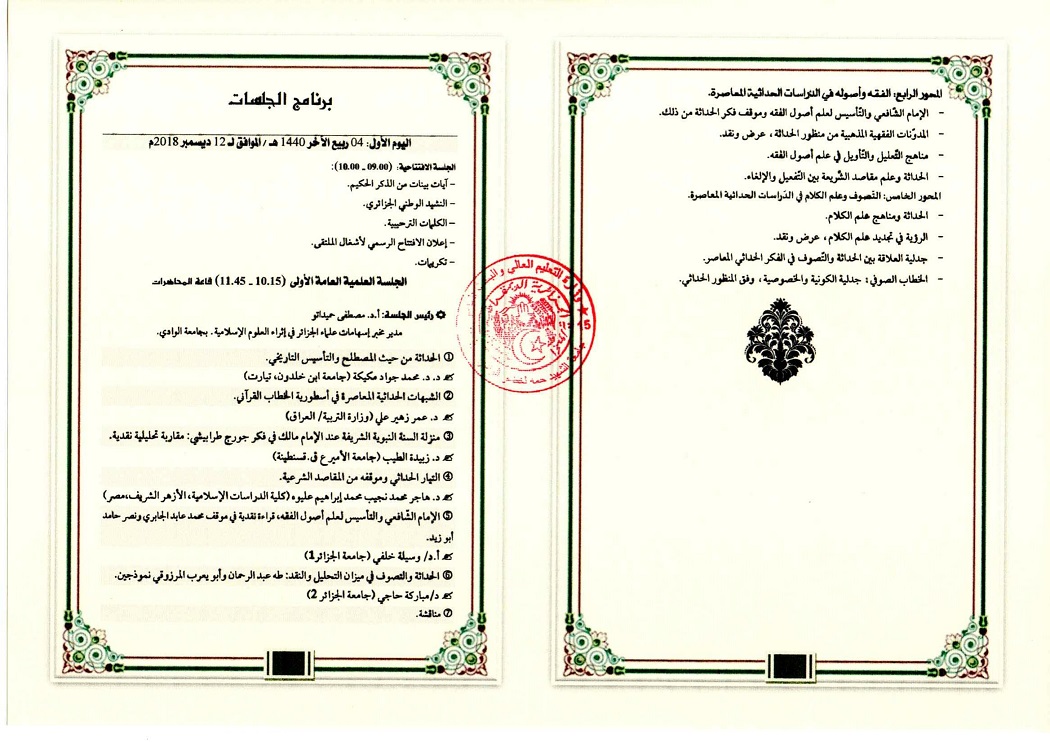 المحور الرابع: الفقه وأصوله في الدراسات الحداثية المعاصرة.
- الإمام الشّافعي والتّأسيس لعلم أصول الفقه وموقف فكر الحداثة من ذلك.
- المدوّنات الفقهية المذهبية من منظور الحداثة، عرض ونقد.
- مناهج التّعليل والتّأويل في علم أصول الفقه.
- الحداثة وعلم مقاصد الشّريعة بين التّفعيل والإلغاء.
المحور الخامس: التّصوف وعلم الكلام في الدّراسات الحداثية المعاصرة.
- الحداثة ومناهج علم الكلام.
- الرؤية في تجديد علم الكلام، عرض ونقد.
- جدلية العلاقة بين الحداثة والتّصوف في الفكر الحداثي المعاصر.
- الخطاب الصوفي: جدلية الكونية والخصوصية، وفق المنظور الحداثي.
برنامج الجلسات
اليوم الأول: 04 ربيع الآخر 1440 هـ / الموافق لـ 12 ديسمبر 2018م
الجلسة الافتتاحية: (09.00 ـ 10.00):
- آيات بينات من الذكر الحكيم.
- النشيد الوطني الجزائري.
- الكلمات الترحيبية.
- إعلان الافتتاح الرسمي لأشغال الملتقى.
- تكريمات.
الجلسة العلمية العامة الأولى (10.15 ـ 11.45) قاعة المحاضرات
رئيس الجلسة: أ.د. مصطفى حميداتو
مدير مخبر إسهامات علماء الجزائر في إثراء العلوم الإسلامية. بجامعة الوادي.
① الحداثة من حيث المصطلح والتأسيس التاريخي.
د. د. محمد جواد مكيكة (جامعة ابن خلدون، تيارت)
② الشبهات الحداثية المعاصرة في أسطورية الخطاب القرآني.
د. عمر زهير علي (وزارة التربية/ العراق)
③ منزلة السنة النبوية الشريفة عند الإمام مالك في فكر جورج طرابيشي: مقاربة تحليلية نقدية.
د. زبيدة الطيب (جامعة الأمير ع ق. قسنطينة)
④ التيار الحداثي وموقفه من المقاصد الشرعية.
د. هاجر محمد نجيب محمد إبراهيم عليوه (كلية الدراسات الإسلامية، الأزهر الشريف،مصر)
⑤ الإمام الشّافعي والتأسيس لعلم أصول الفقه، قراءة نقدية في موقف محمد عابد الجابري ونصر حامد
أبو زيد.
أ.د/ وسيلة خلفي (جامعة الجزائر1)
⑥ الحداثة والتصوف في ميزان التحليل والنقد: طه عبد الرحمان وأبو يعرب المرزوقي نموذجين.
د/مباركة حاجي (جامعة الجزائر 2)
⑦ مناقشة.
وزارة التعليم العالي و